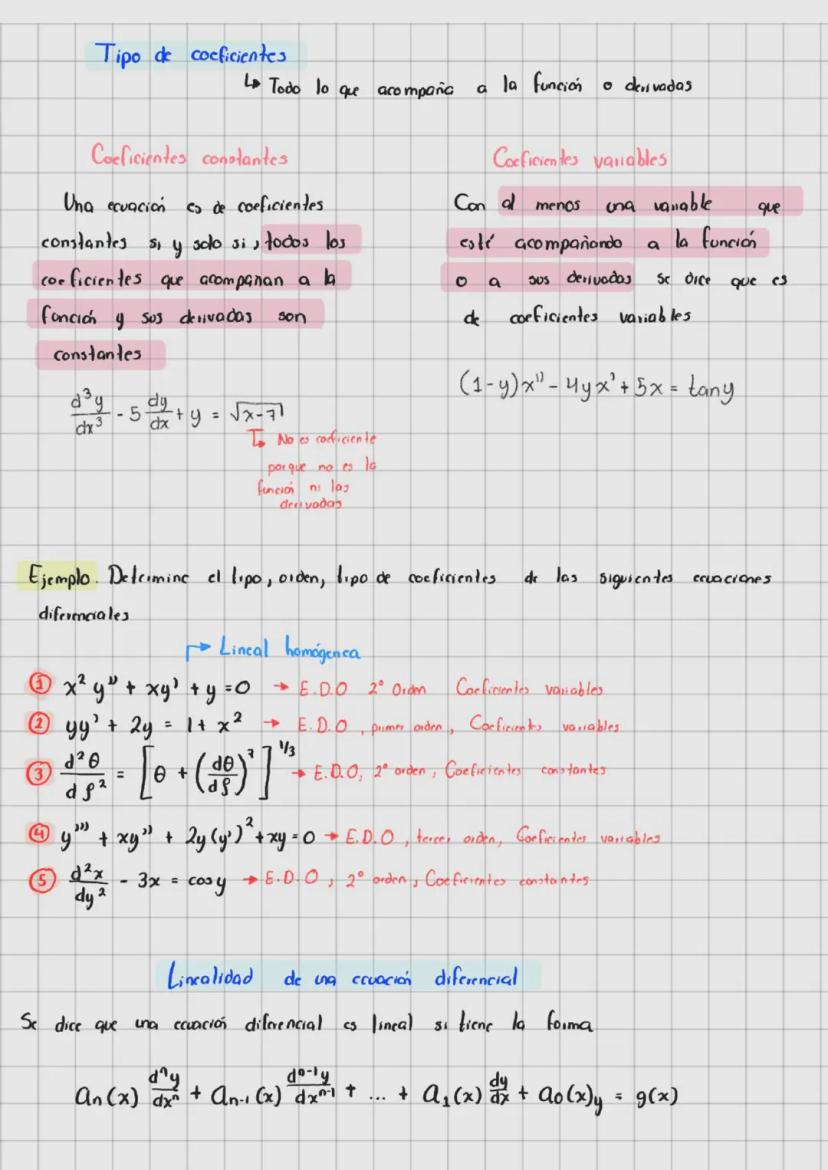 Tipo de coeficientes
↳ Todo lo que acompaña a la función o derivadas
Coeficientes constantes
Una ecuación es de coeficientes
constantes si y solo si, todos los
coeficientes que acompañan a la
función y sus derivadas son
constantes
d³y/dx³ - 5 dy/dx + y = √(x-7)
No es coeficiente
porque no es la
función ni las
derivadas
Coeficientes variables
Con al menos una variable que
esté acompañando a la función
o a sus derivadas se dice que es
de coeficientes variables
(1-y)x'' - 4yx' + 5x = tan y
Ejemplo. Determine el tipo, orden, tipo de coeficientes de las siguientes ecuaciones
diferenciales
→ Lineal homógenea
① x² y'' + xy' + y = 0 → E.D.O 2° Orden Coeficientes variables
② yy' + 2y = 1 + x² → E.D.O, primer orden, Coeficientes variables
③ d²θ/dρ² = [θ + (dθ/dρ)⁷]^1/3 → E.D.O, 2° orden, Coeficientes constantes
④ y''' + xy'' + 2y(y')² + xy = 0 → E.D.O, tercer orden, Coeficientes variables
⑤ d²x/dy² - 3x = cos y → E.D.O, 2° orden, Coeficientes constantes
Linealidad de una ecuación diferencial
Se dice que una ecuación diferencial es lineal si tiene la forma
aₙ(x) dⁿy/dxⁿ + aₙ₋₁(x) dⁿ⁻¹y/dxⁿ⁻¹ + ... + a₁(x) dy/dx + a₀(x)y = g(x)